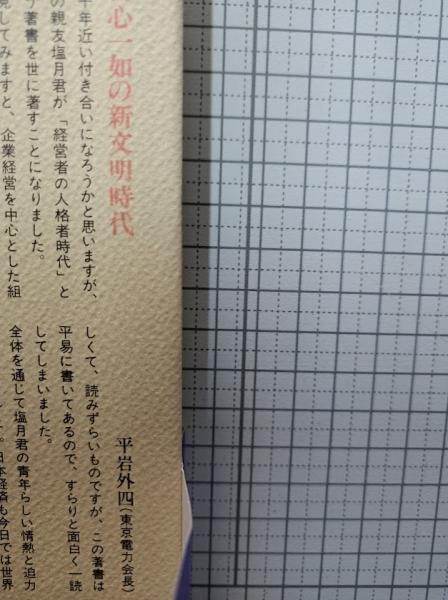 心一如の新文明時代
十年近い付き合いになろうかと思いますが、
の親友塩月君が「経営者の人格者時代」と
う著書を世に著すことになりました。
見してみますと、企業経営を中心とした組
平岩外四（東京電力会長）
しくて、読みずらいものですが、この著書は
平易に書いてあるので、すらりと面白く一読
してしまいました。
全体を通じて塩月君の青年らしい情熱と迫力
日本経済も今日では世界